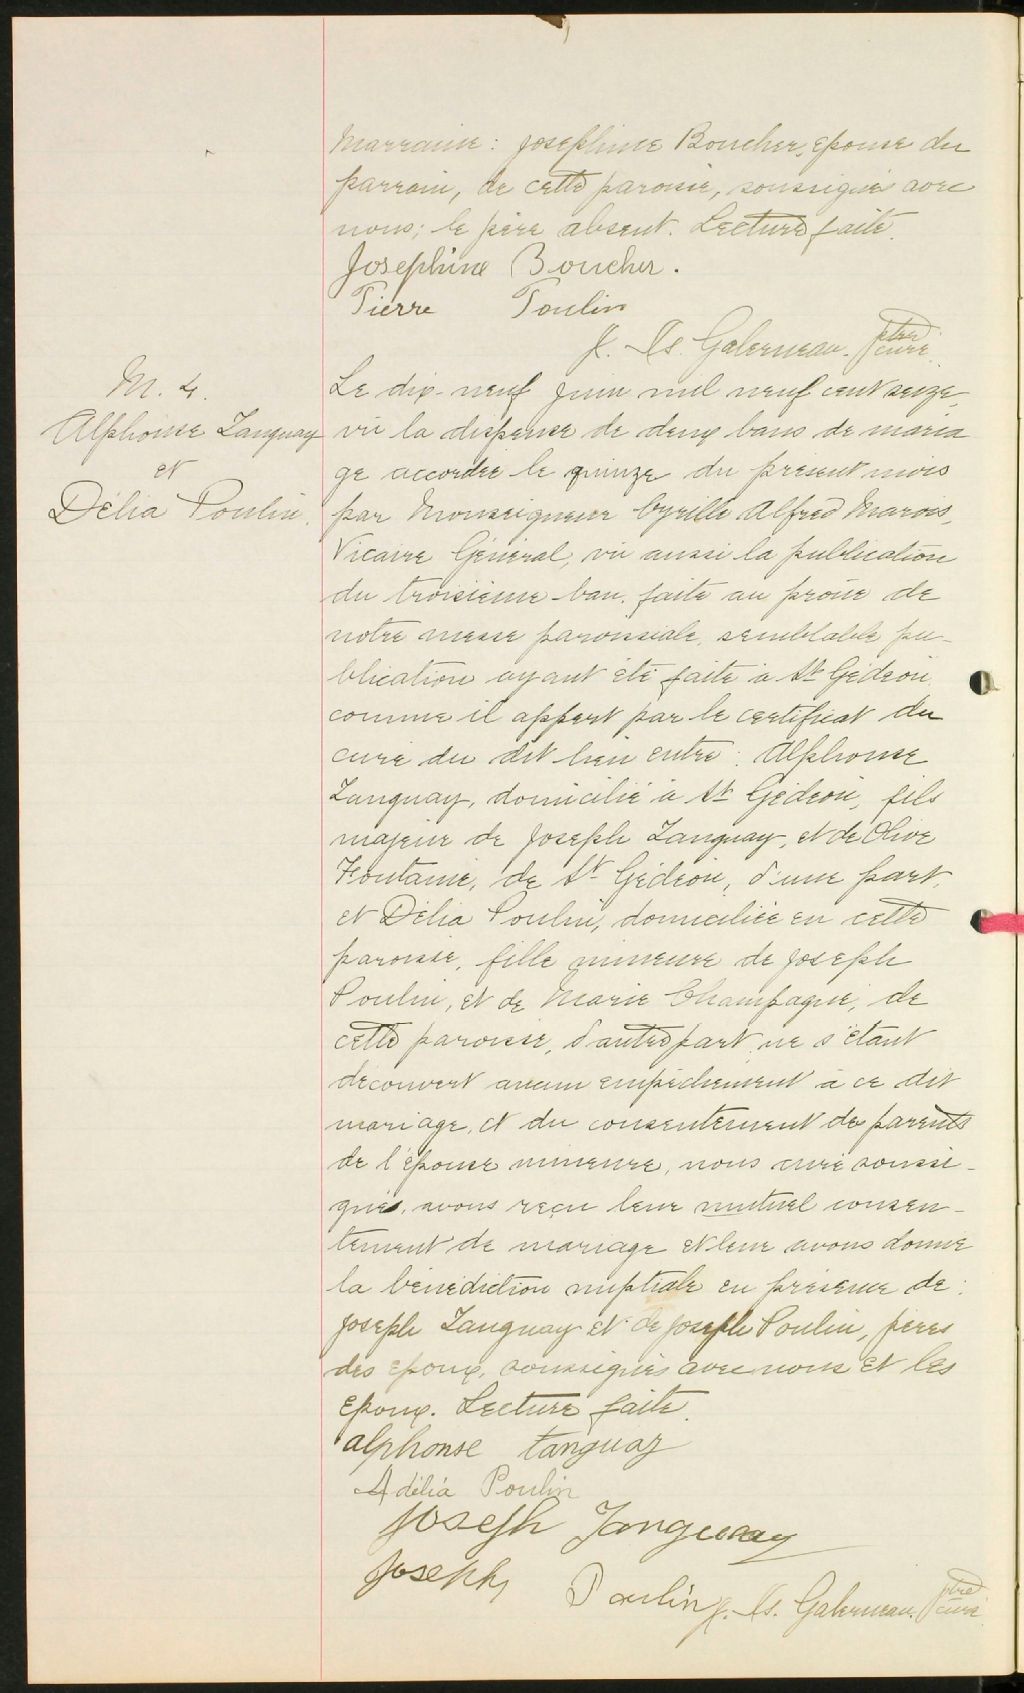 Marraine : Josephine Boucher, epouse du
parrain, de cette paroisse, soussignés avec
nous; le père absent. Lecture faite.
Josephine Boucher.
Pierre Poulin
J. Galerneau. ptre curé.
M. 4.
Alphonse Tanguay
et
Délia Poulin.
Le dix-neuf juin mil neuf cent seize,
vu la dispense de deux bans de maria
ge accordée le quinze du present mois
par Monseigneur Cyrille Alfred Marois,
Vicaire Général, vu aussi la publication
du troisième ban faite au prône de
notre messe paroissiale, semblable pu-
blication ayant été faite à St Gédéon,
comme il appert par le certificat du
curé du dit lieu entre : Alphonse
Tanguay, domicilié à St Gédéon, fils
majeur de Joseph Tanguay, et de Olive
Fontaine, de St Gédéon, d'une part,
et Délia Poulin, domiciliée en cette
paroisse, fille mineure de Joseph
Poulin, et de Marie Champagne, de
cette paroisse, d'autre part, ne s'étant
découvert aucun empêchement à ce dit
mariage, et du consentement des parents
de l'épouse mineure, nous curé soussi-
gnés, avons reçu leur mutuel consen-
tement de mariage et leur avons donné
la bénédiction nuptiale en présence de :
Joseph Tanguay et de Joseph Poulin, pères
des epoux, soussignés avec nous et les
epoux. Lecture faite.
alphonse tanguay
Adélia Poulin
Joseph Tanguay
Joseph Poulin
J. Galerneau. ptre curé